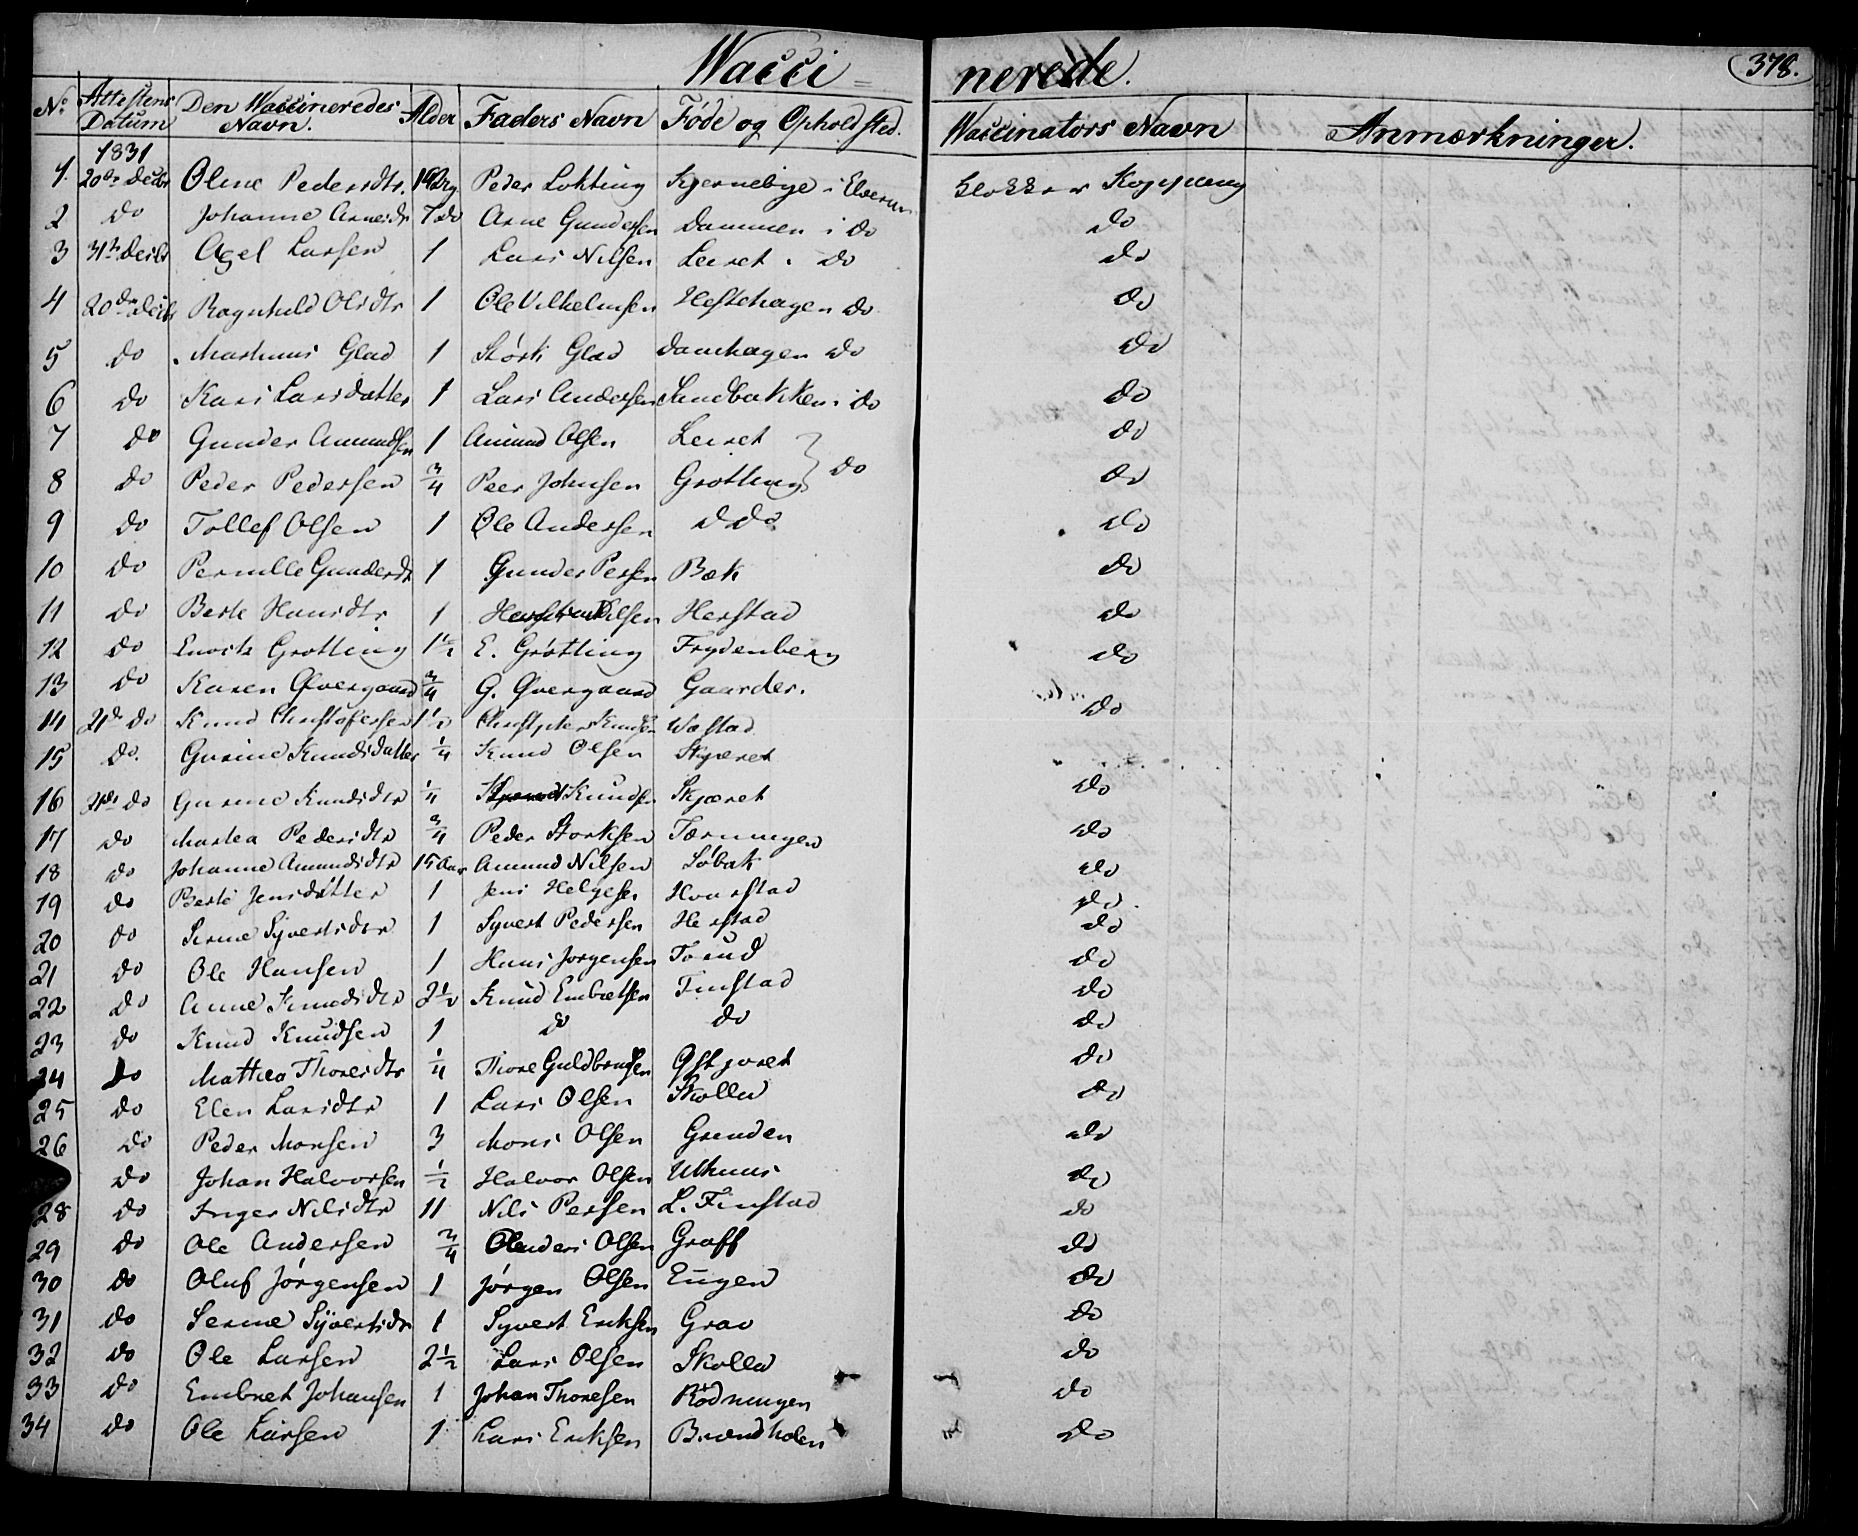 Wacci = nerede.
378.
No. Attestens Datum Den Waccineredes Navn. Alder Faders Navn Føde og Ophold sted. Waccinators Navn Anmærkninger.
1831
1. 20de Decbr Oline Pedersdtr. Peder Lokting Kjernebye i Elverum Klokker Koppang
2 do Johanne Arnesdr 7 do Arne Gundersen Dammen i do do
3 31te Decbr Axel Larsen 1 Lars Nilsen Leiret i do do
4 20de Decbr Ragnhild Olsdtr 1 Ole Vilhelmsen Hestehagen do do
5 do Mathinus Glad 1 Størk Glad Damhagen do do
6 do Kari Larsdatter 1 Lars Andersen Sandbakken i do do
7 do Gunder Amundsen 1 Amund Olsen Leiret do do
8 do Peder Pedersen 3/4 Peer Johnsen Grøtting do
9 do Tollef Olsen 1 Ole Andersen d do do
10 do Pernille Gundersdt 1 Gunder Persen Bæk do
11 do Berte Hansdtr 1 Nilsen Herstad do
12 do Enock Grøtting 1½ E. Grøtting Frydenberg do
13 do Karen Øvergaard 3/4 G. Øvergaard Gaarder. do
14 21de do Knud Christofersen 1½ Christopher Knudsen Wæstad
15 do. Gurine Knudsdatter 1/4 Knud Olsen Skjæret
16 21de do Gurine Knudsdtr 1/4 Knudsen Skjæret do
17 do Marthea Pedersdtr 3/4 Peder Størksen Tærningen do
18 do Johanne Amundsdtr 15 Aar Amund Nilsen Søbak do
19 do Berte Jensdatter 1 Jens Helgesen Hvarstad do.
20 do Serine Syvertsdtr 1 Syvert Pedersen Herstad do
21 do Ole Hansen 1 Hans Jørgensen Torud do
22 do Anne Knudsdtr 2½ Knud Embretsen Finstad do
23 do Knud Knudsen 1 do do do
24 do Mathea Thoresdtr 1/4 Thore Guldbrandsen do
25 do Elen Larsdtr 1 Lars Olsen Skolla do
26 do Peder Monsen 3 Mons Olsen Grinden do
do Johan Halvorsen ½ Halvor Olsen Uthuus do
28 do Inger Nilsdtr 11 Nils Persen L. Finstad do
29 do Ole Andersen 3/4 Olsen Graff do
30 do Oluf Jørgensen 1 Jørgen Olsen Engen do
31 do Serine Syvertsdr 1 Syvert Eriksen Grav do
32 do Ole Larsen 2½ Lars Olsen Skolla do
33 do Embret Johansen 1 Johan Thoresen Rødningen do
34 do Ole Larsen 1 Lars Eriksen Brændholen do